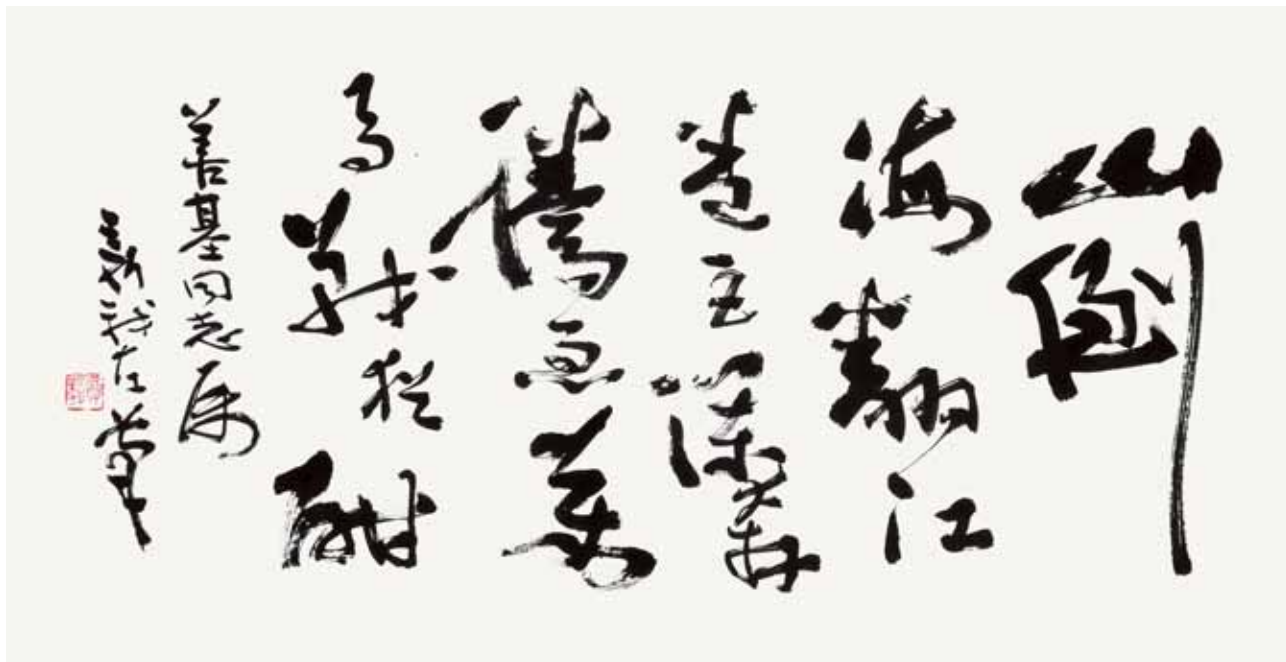 山倒
海翻江
卷巨瀾奔
騰急萬
馬戰猶酣
善基同志属
新我左筆